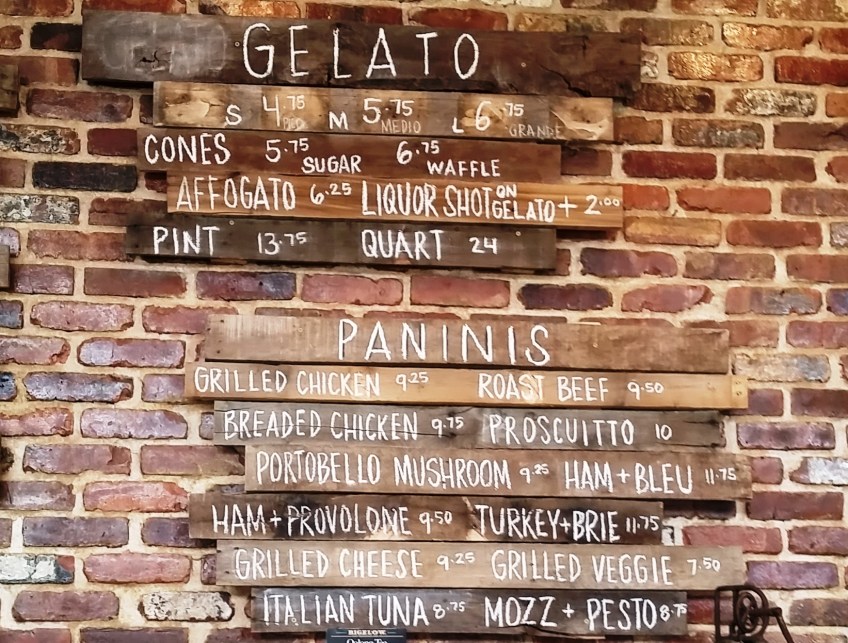 GELATO
S 4.75 M 5.75 MEDIO L 6.75 GRANDE
CONES 5.75 SUGAR 6.75 WAFFLE
AFFOGATO 6.25 LIQUOR SHOT ON GELATO + 2.00
PINT 13.75 QUART 24
PANINIS
GRILLED CHICKEN 9.25 ROAST BEEF 9.50
BREADED CHICKEN 9.75 PROSCUITTO 10
PORTOBELLO MUSHROOM 9.25 HAM + BLEU 11.75
HAM + PROVOLONE 9.50 TURKEY + BRIE 11.75
GRILLED CHEESE 9.25 GRILLED VEGGIE 7.50
ITALIAN TUNA 8.75 MOZZ + PESTO 8.75
BIGELOW